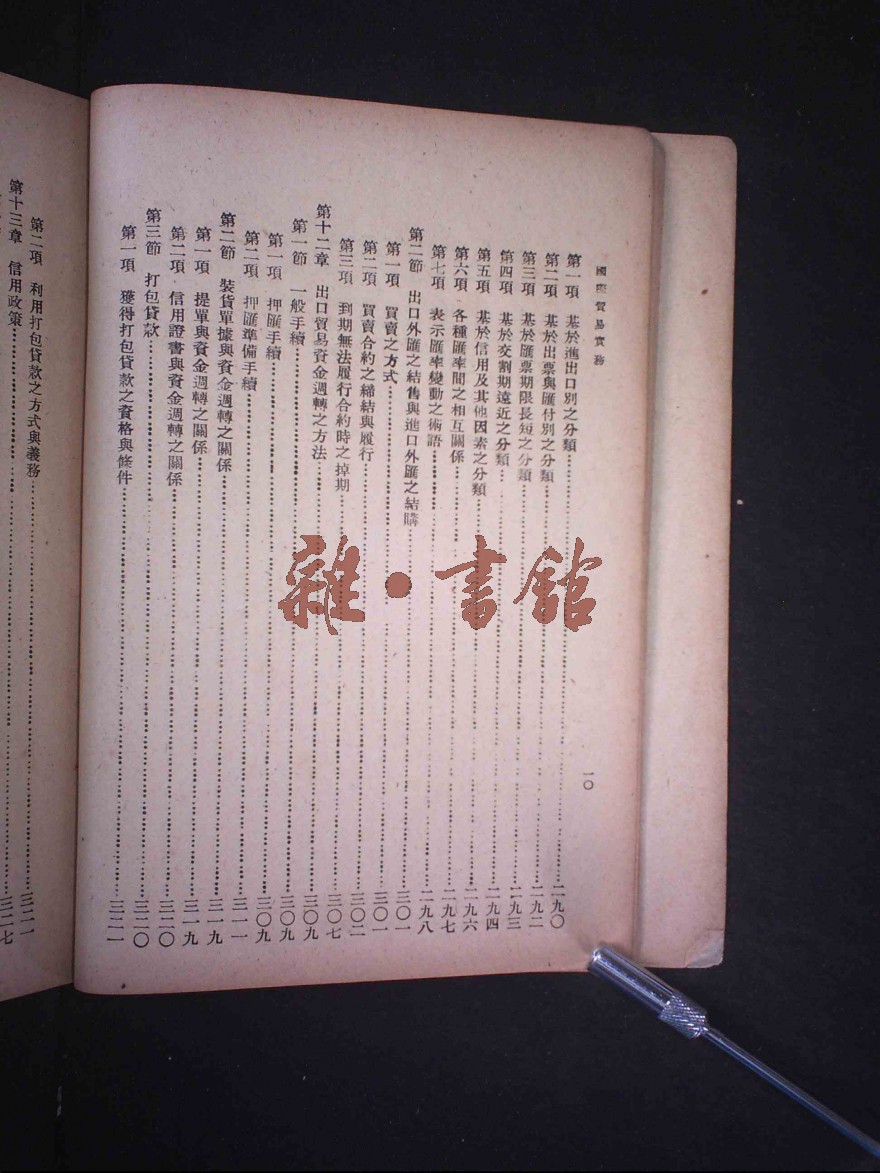 國際貿易實務
一〇
第一項 基於進出口別之分類……二九〇
第二項 基於出票與匯付別之分類……二九二
第三項 基於匯票期限長短之分類……二九三
第四項 基於交割期遠近之分類……二九四
第五項 基於信用及其他因素之分類……二九六
第六項 各種匯率間之相互關係……二九七
第七項 表示匯率變動之術語……二九八
第二節 出口外匯之結售與進口外匯之結購……三〇一
第一項 買賣之方式……三〇一
第二項 買賣合約之締結與履行……三〇二
第三項 到期無法履行合約時之掉期……三〇七
第十二章 出口貿易資金週轉之方法……三〇九
第一節 一般手續……三〇九
第一項 押匯手續……三〇九
第二項 押匯準備手續……三一一
第二節 裝貨單據與資金週轉之關係……三一九
第一項 提單與資金週轉之關係……三一九
第二項 信用證書與資金週轉之關係……三二〇
第三節 打包貸款……三二〇
第一項 獲得打包貸款之資格與條件……三二一
第二項 利用打包貸款之方式與義務……三二一
第十三章 信用政策……三二七
雜·書館